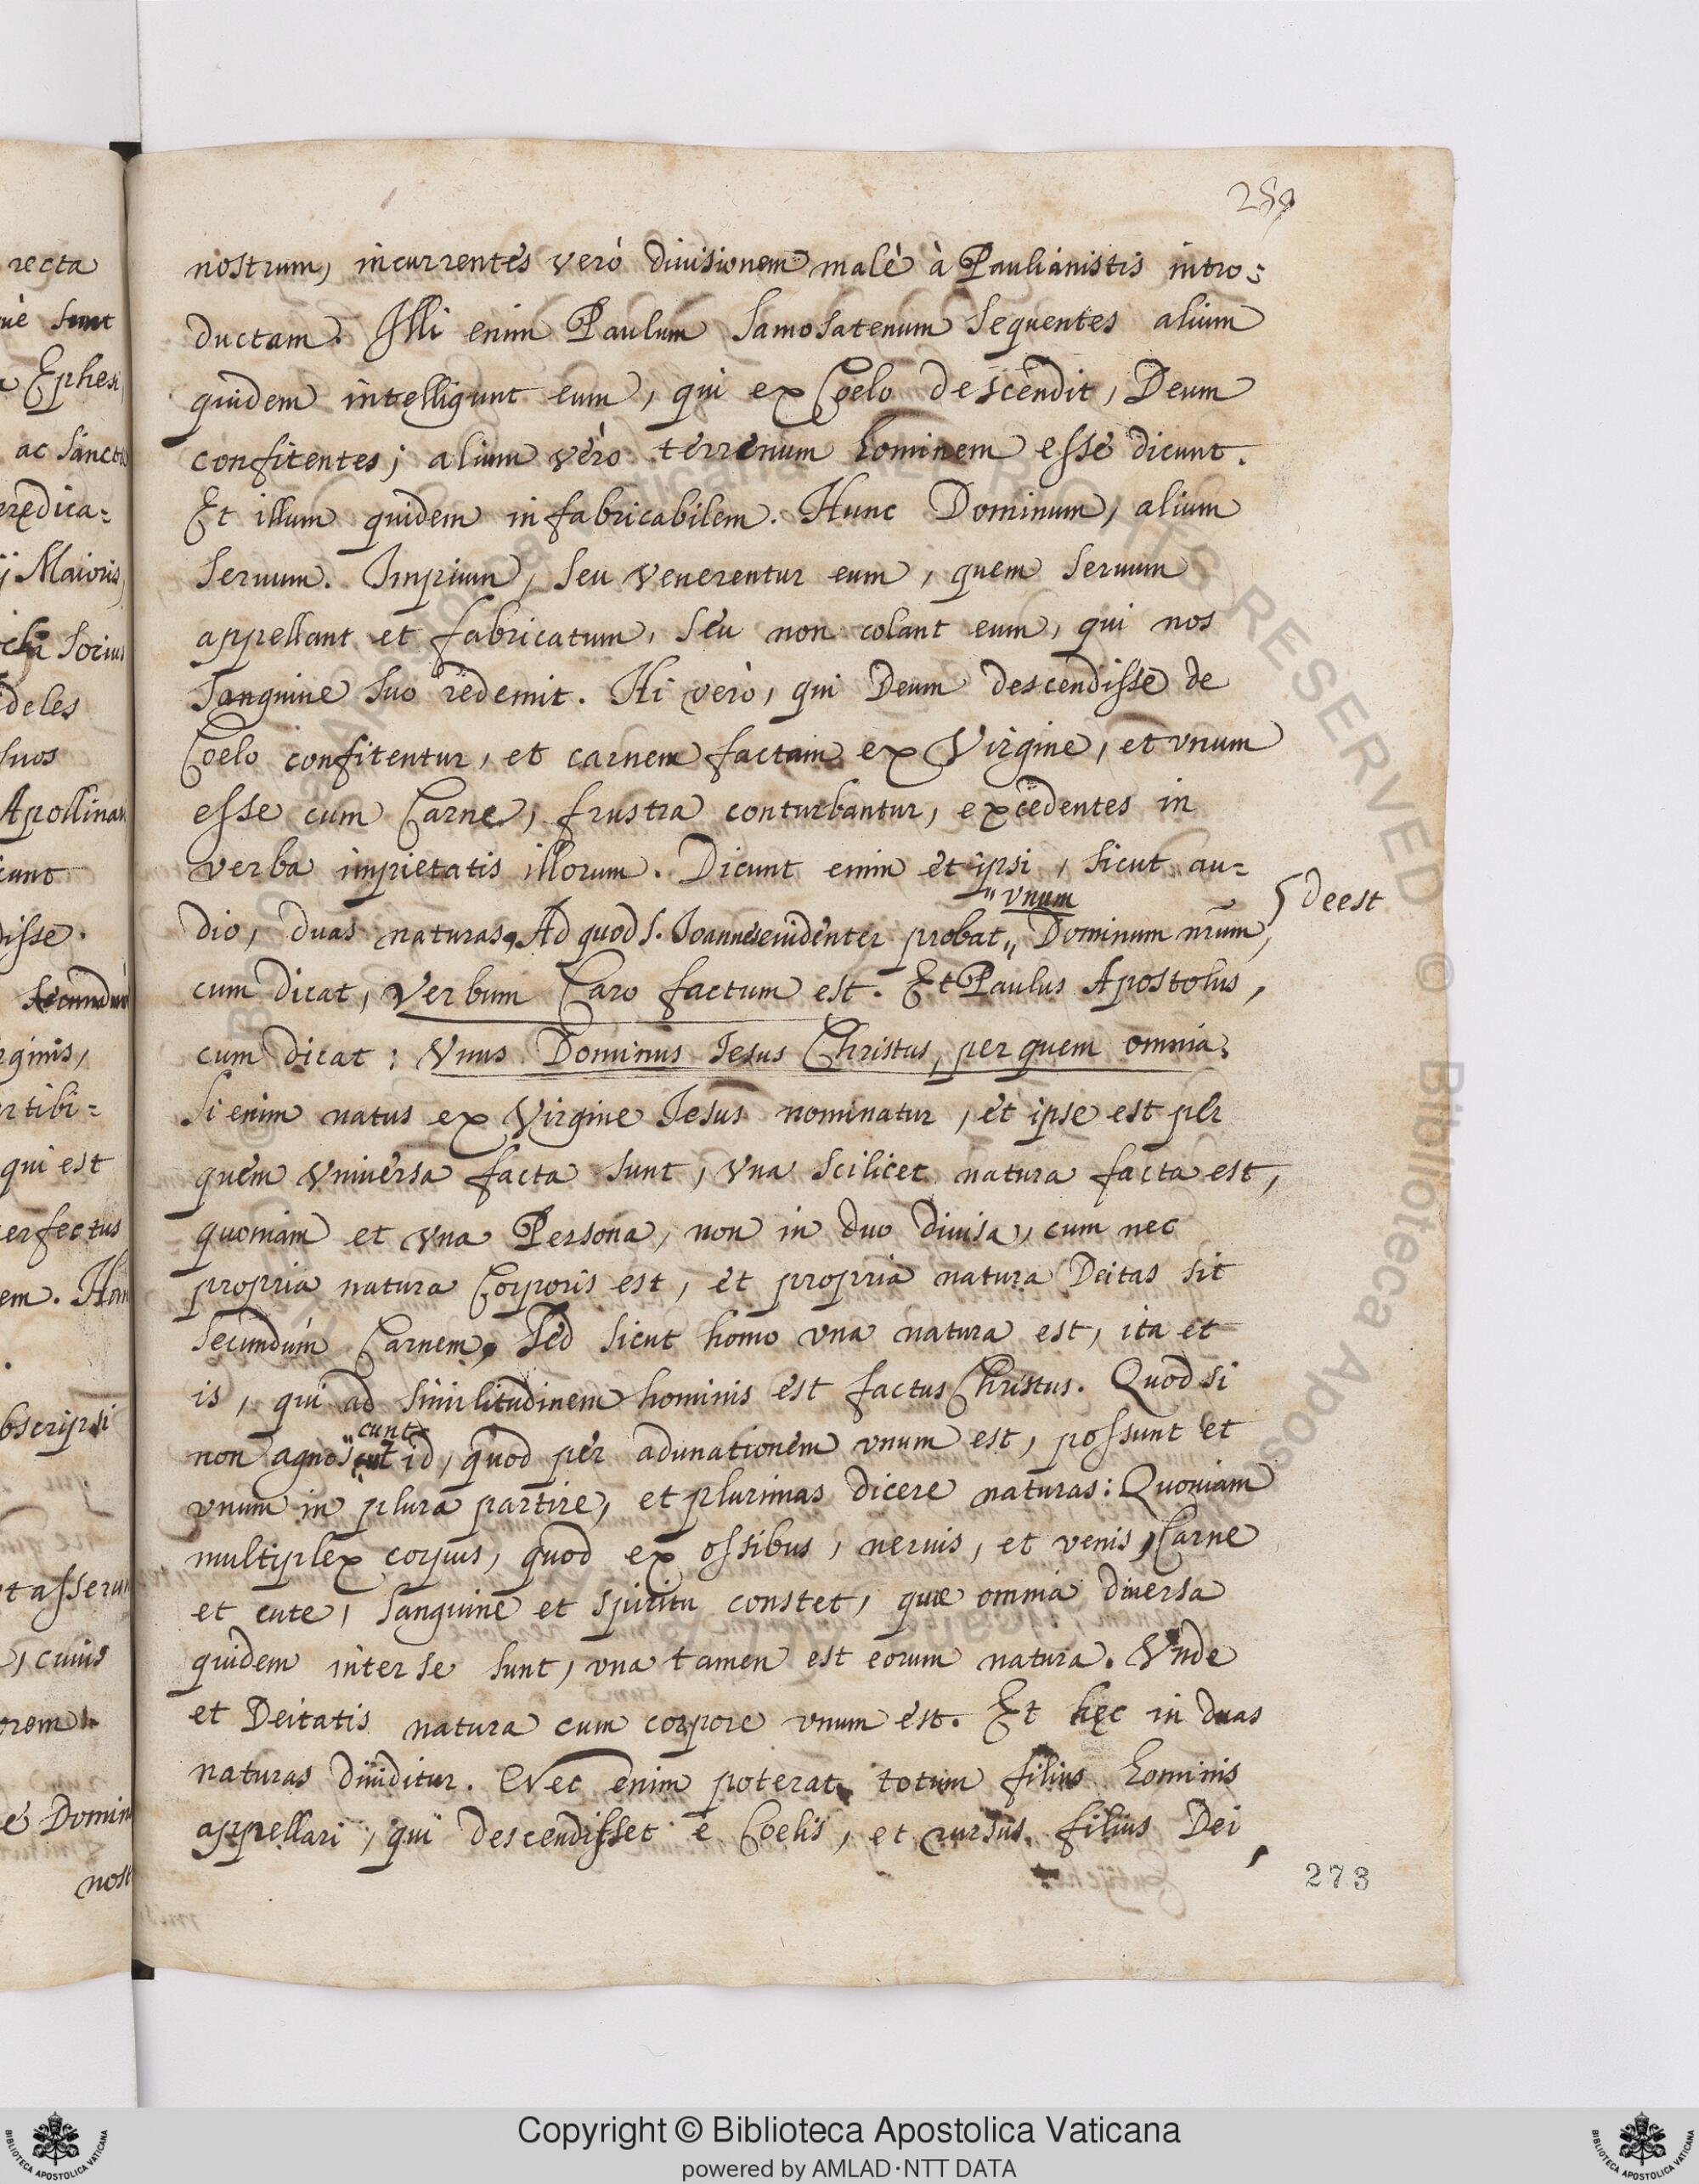 289
nostrum, incurrentes verò diuisionem malè à Paulianistis intro=
ductam. Illi enim Paulum Samosatenum sequentes alium
quidem intelligunt eum, qui ex Coelo descendit, Deum
confitentes; alium verò terrenum hominem esse dicunt.
Et illum quidem infabricabilem. Hunc Dominum, alium
seruum. Impium, seu venerentur eum, quem seruum
appellant et fabricatum, seu non colant eum, qui nos
sanguine suo redemit. Hi verò, qui Deum descendisse de
Coelo confitentur, et carnem factam ex Virgine, et vnum
esse cum Carne, frustra conturbantur, excedentes in
verba impietatis illorum. Dicunt enim et ipsi, sicut au=
vnum
deest
dio, duas naturas, Ad quod S. Joannes euidenter probat Dominum nr̃um,
cum dicat, Verbum Caro factum est. Et Paulus Apostolus,
cum dicat: Vnus Dominus Jesus Christus, per quem omnia.
Si enim natus ex Virgine Jesus nominatur, et ipse est per
quem vniuersa facta sunt, vna scilicet natura facta est,
quoniam et vna Persona, non in duo diuisa, cum nec
propria natura Corporis est, et propria natura Deitas sit
secundùm Carnem, Sed sicut homo vna natura est, ita et
is, qui ad similitudinem hominis est factus Christus. Quod si
cunt
non agnos id, quod per adunationem vnum est, possunt et
vnum in plura partire, et plurimas dicere naturas: Quoniam
multiplex corpus, quod ex ossibus, neruis, et venis, Carne
et cute, sanguine et spiritu constet, quæ omnia diuersa
quidem inter se sunt, vna tamen est eorum natura. Vnde
et Deitatis natura cum corpore vnum est. Et hęc in duas
naturas diuiditur. Nec enim poterat totum filius hominis
appellari, qui descendisset è Coelis, et rursus filius Dei,
273
recta
sunt
Ephesi
ac sanct
rędica=
Maioris
deles
suos
Apollinar
isse.
secundùm
ginis,
rtibi=
qui est
erfectus
em. Han
bscripsi
t asserun
, cuius
orem
Domin
nost
Copyright © Biblioteca Apostolica Vaticana
powered by AMLAD·NTT DATA